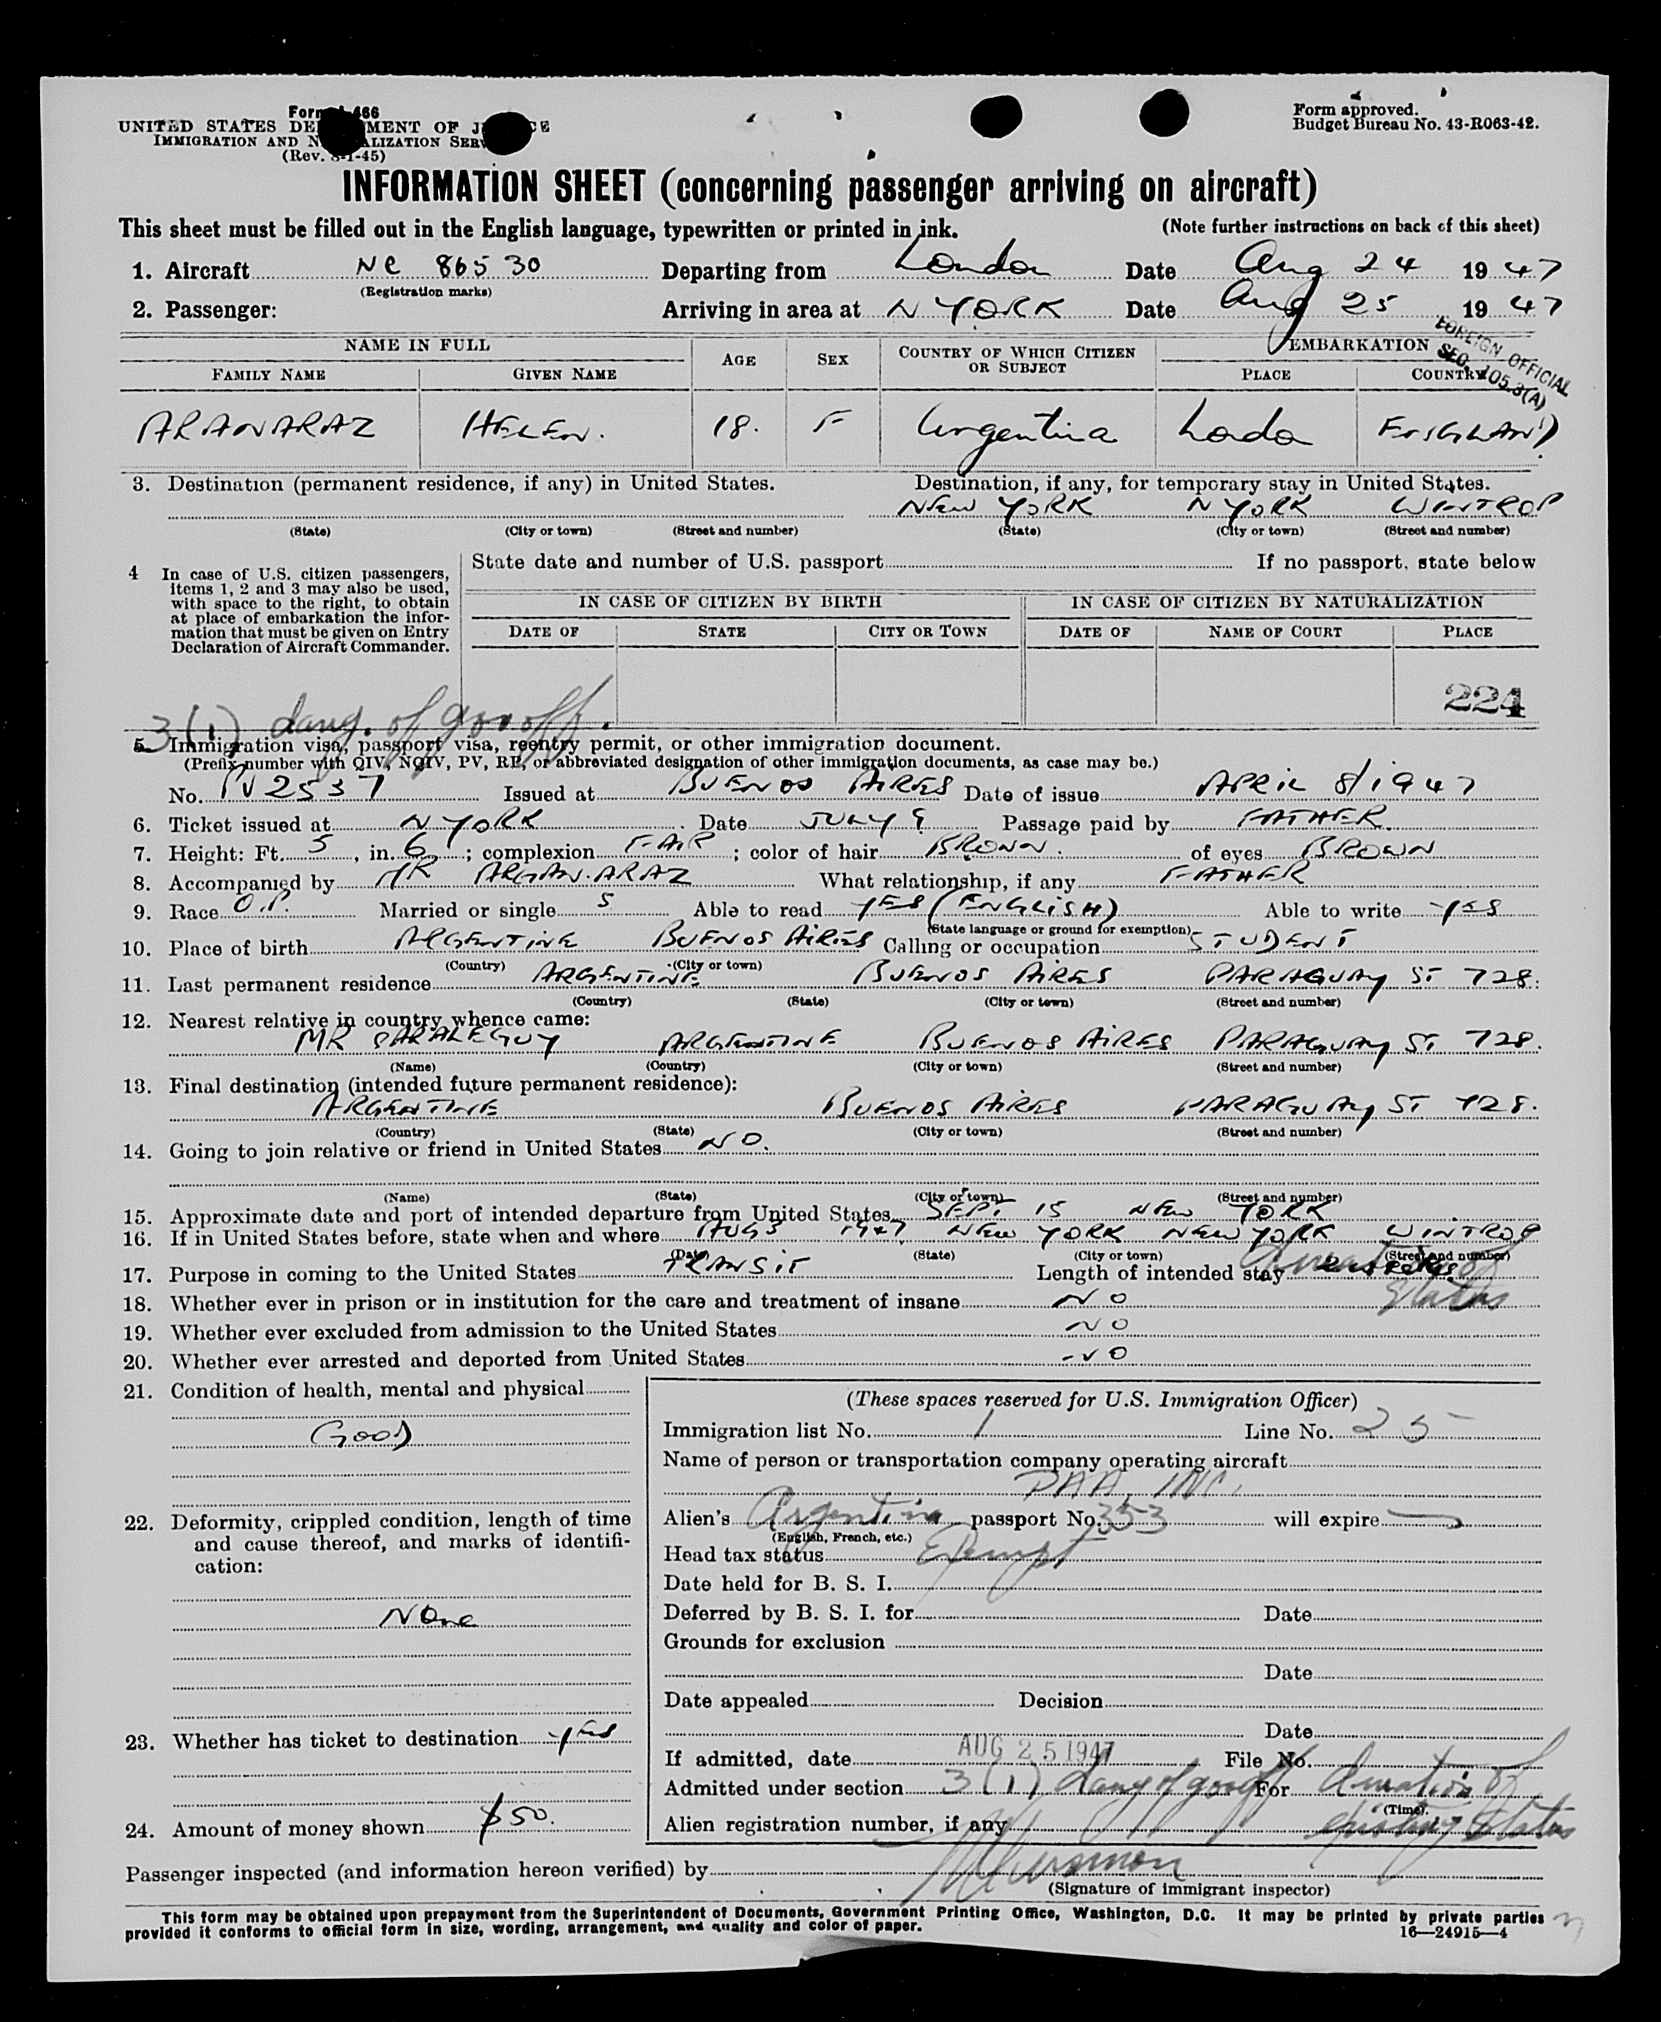 Form I-466
UNITED STATES DEPARTMENT OF JUSTICE
IMMIGRATION AND NATURALIZATION SERVICE
(Rev. 8-1-45)
Form approved.
Budget Bureau No. 43-R063-42.
INFORMATION SHEET (concerning passenger arriving on aircraft)
This sheet must be filled out in the English language, typewritten or printed in ink. (Note further instructions on back of this sheet)
1. Aircraft NC 86530 Departing from London Date Aug 24 1947
(Registration marks)
2. Passenger: Arriving in area at N YORK Date Aug 25 1947
FOREIGN OFFICIAL
SEC. 105.3(A)
NAME IN FULL AGE SEX COUNTRY OF WHICH CITIZEN OR SUBJECT EMBARKATION
FAMILY NAME GIVEN NAME PLACE COUNTRY
ARANARAZ HELEN. 18. F Argentina London ENGLAND
3. Destination (permanent residence, if any) in United States. Destination, if any, for temporary stay in United States.
NEW YORK N YORK WINTROP
(State) (City or town) (Street and number) (State) (City or town) (Street and number)
4 In case of U.S. citizen passengers, items 1, 2 and 3 may also be used, with space to the right, to obtain at place of embarkation the information that must be given on Entry Declaration of Aircraft Commander.
State date and number of U.S. passport If no passport, state below
IN CASE OF CITIZEN BY BIRTH IN CASE OF CITIZEN BY NATURALIZATION
DATE OF STATE CITY OR TOWN DATE OF NAME OF COURT PLACE
224
3(1) daug. of gov off.
5. Immigration visa, passport visa, reentry permit, or other immigration document.
(Prefix number with QIV, NQIV, PV, RP, or abbreviated designation of other immigration documents, as case may be.)
No. PV 2537 Issued at BUENOS AIRES Date of issue APRIL 8/1947
6. Ticket issued at N YORK Date JULY 9 Passage paid by FATHER.
7. Height: Ft. 5, in. 6; complexion FAIR; color of hair BROWN. of eyes BROWN
8. Accompanied by MR ARGAN.ARAZ What relationship, if any FATHER
9. Race O.P. Married or single S Able to read YES (ENGLISH) Able to write YES
(State language or ground for exemption)
10. Place of birth ARGENTINE BUENOS AIRES Calling or occupation STUDENT
(Country) (City or town)
11. Last permanent residence ARGENTINE BUENOS AIRES PARAGUAY ST 728.
(Country) (State) (City or town) (Street and number)
12. Nearest relative in country whence came:
MR PARALEGUY ARGENTINE BUENOS AIRES PARAGUAY ST 728.
(Name) (Country) (City or town) (Street and number)
13. Final destination (intended future permanent residence):
ARGENTINE BUENOS AIRES PARAGUAY ST 728.
(Country) (State) (City or town) (Street and number)
14. Going to join relative or friend in United States NO.
(Name) (State) (City or town) (Street and number)
15. Approximate date and port of intended departure from United States SEPT 15 NEW YORK
16. If in United States before, state when and where AUG 3 1947 NEW YORK NEW YORK WINTROP
(Date) (State) (City or town) (Street and number)
17. Purpose in coming to the United States TRANSIT Length of intended stay Duration of Status
18. Whether ever in prison or in institution for the care and treatment of insane NO
19. Whether ever excluded from admission to the United States NO
20. Whether ever arrested and deported from United States NO
21. Condition of health, mental and physical
GOOD
22. Deformity, crippled condition, length of time and cause thereof, and marks of identification:
None
23. Whether has ticket to destination YES
24. Amount of money shown $50.
(These spaces reserved for U.S. Immigration Officer)
Immigration list No. 1 Line No. 25
Name of person or transportation company operating aircraft
PAA, INC.
Alien's Argentina passport No. 353 will expire
(English, French, etc.)
Head tax status Exempt
Date held for B. S. I.
Deferred by B. S. I. for Date
Grounds for exclusion
Date
Date appealed Decision
Date
If admitted, date AUG 25 1947 File No.
Admitted under section 3(1) daug of gov off For duration of
(Time).
Alien registration number, if any existing status
Passenger inspected (and information hereon verified) by
(Signature of immigrant inspector)
This form may be obtained upon prepayment from the Superintendent of Documents, Government Printing Office, Washington, D.C. It may be printed by private parties
provided it conforms to official form in size, wording, arrangement, and quality and color of paper.
16—24915—4